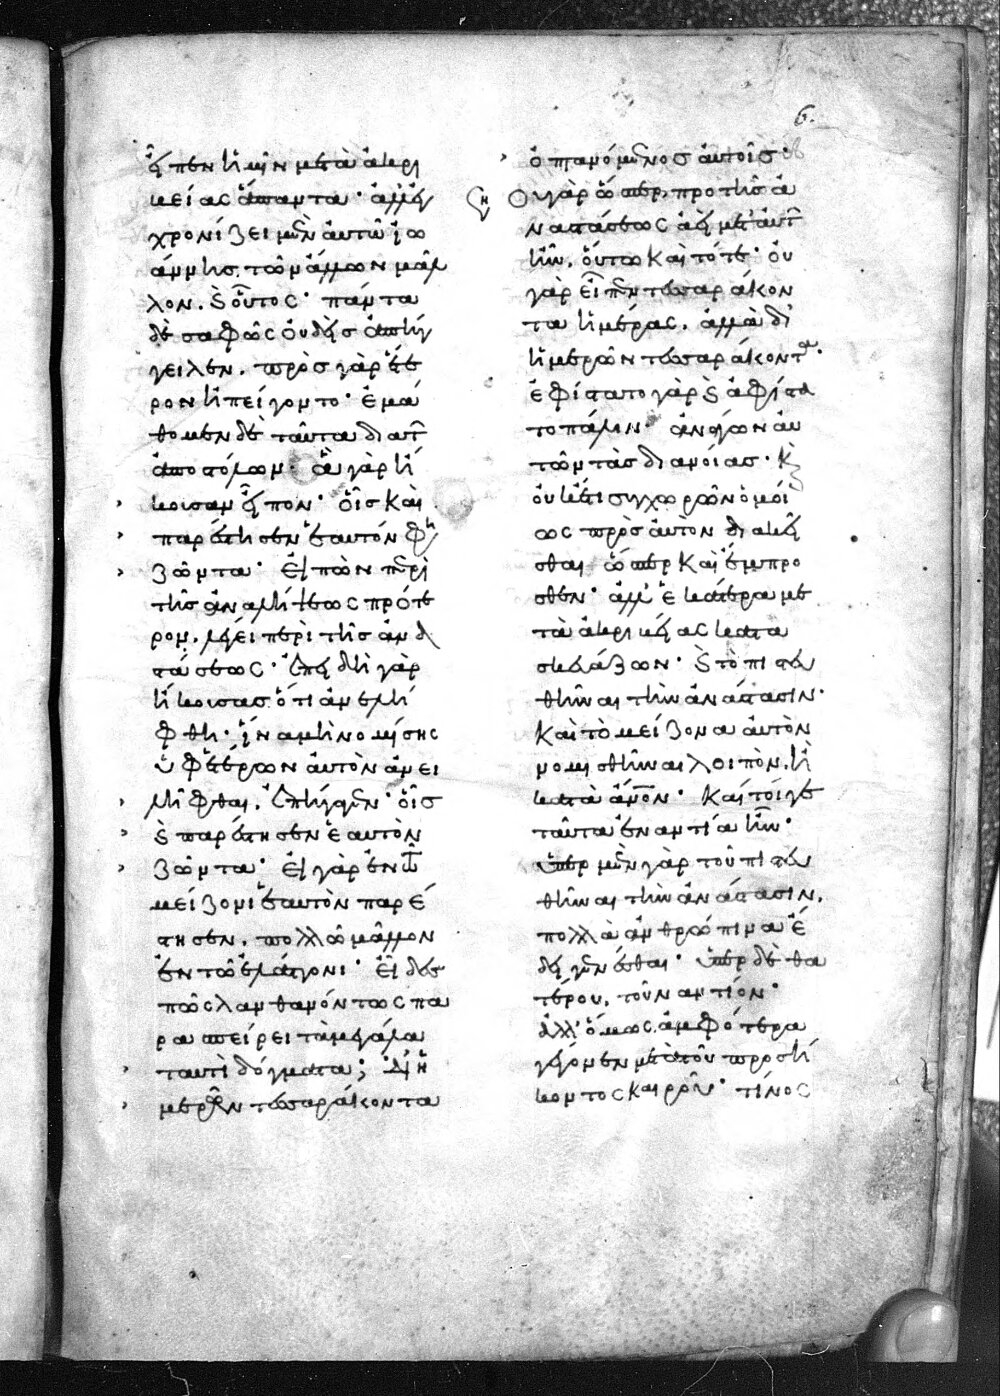 6.
εἶπεν ἡμῖν μετὰ ἀκρι
βείας ἅπαντα· ἀλλ' ἐγ
χρονίζει μὲν αὐτῶ ἰω
άννης τῶν ἄλλων μᾶλ
λον. καὶ οὗτος· πάντα
δὲ σαφῶς οὐδεὶς ἀπήγ
γειλεν. πρὸς γὰρ ἕτε
ρον ἠπείγοντο· ἐμά
θομεν δὲ ταῦτα δι αὐτῶν
ἀποστόλων· ἃ γὰρ ἤ
κουσαν εἶπον· οἷς καὶ
παρέστησεν ἑαυτὸν
ζῶντα· εἰπὼν περὶ
τῆς ἀναλήψεως πρότε
ρον. λέγει περὶ τῆς ἀνα
στάσεως· ἐπειδὴ γὰρ
ἤκουσας ὅτι ἀνελή
φθη· ἵνα μὴ νομίσης
ὑφ' ἑτέρων αὐτὸν ἀνει
λῆφθαι, ἐπήγαγεν· οἷς
καὶ παρέστησεν ἑαυτὸν
ζῶντα· εἰ γὰρ ἐν τῶ
μείζονι ἑαυτὸν παρέ
στησεν. πολλῶ μᾶλλον
ἐν τῶ ἐλάττονι· εἶδες
πῶς λανθανόντως πα
ρασπείρει τὰ μεγάλα
ταυτὶ δόγματα; δι' ἡ
μερῶν τεσσαράκοντα
ὀπτανόμενος αὐτοῖς·
οὐ γὰρ ὥσπερ πρὸ τῆς ἀ
ναστάσεως ἀεὶ μετ' αὐτῶν
ἦν, οὕτω καὶ τότε· οὐ
γὰρ εἶπεν τεσσαράκον
τα ἡμέρας, ἀλλὰ δι'
ἡμερῶν τεσσαράκοντα·
ἐφίστατο γὰρ καὶ ἀφίστα
το πάλιν· ἀνάγων αὐ
τῶν τὰς διανοίας· καὶ
οὐκέτι συγχωρῶν ὁμοί
ως πρὸς αὐτὸν διακεῖ
σθαι ὥσπερ καὶ ἔμπρο
σθεν· ἀλλ' ἑκάτερα με
τὰ ἀκριβείας κατα
σκευάζων· καὶ τὸ πιστευ
θῆναι τὴν ἀνάστασιν·
καὶ τὸ μείζονα αὐτὸν
νομισθῆναι λοιπὸν, ἢ
κατὰ ἄνον· καίτοιγε
ταῦτα ἐναντία ἦν·
ὑπὲρ μὲν γὰρ τοῦ πιστευ
θῆναι τὴν ἀνάστασιν,
πολλὰ ἀνθρώπινα ἔ
δει γενέσθαι· ὑπὲρ δὲ θα
τέρου, τοὐναντίον·
ἀλλ' ὅμως ἀμφότερα
γέγονεν μετὰ τοῦ προσή
κοντος καιροῦ· τίνος